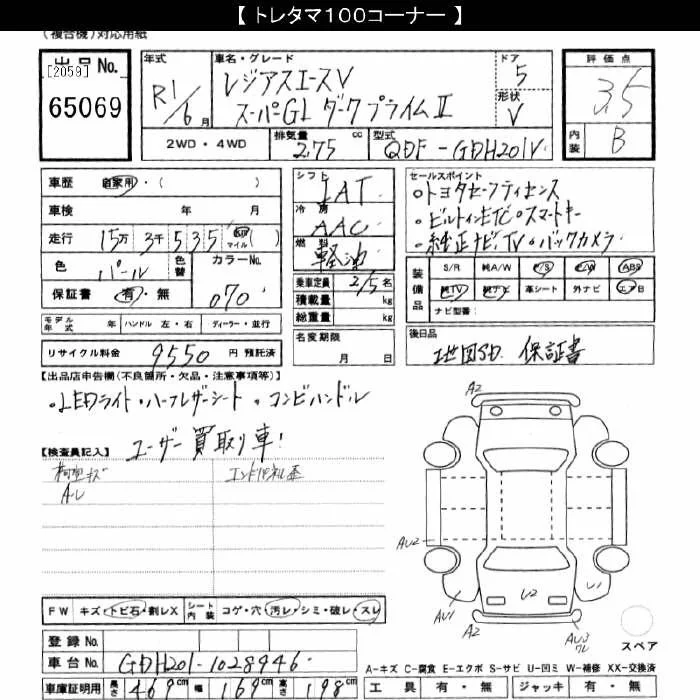 【 トレタマ100コーナー 】
(複合機)対応用紙
出品No.
[2059]
65069
年式
R1/6月
車名・グレード
レジアスエースV
スーパーGL ダークプライムⅡ
ドア
5
形状
V
評価点
3.5
内装
B
2WD・4WD
排気量 2.75 cc
型式 QDF-GDH201V
車歴 自家用・( )
車検 年 月
走行 15万3千535 km マイル ( )
色 パール
色替
カラーNo. 070
保証書 有・無
モデル年式 年 ハンドル 左・右 ディーラー・並行
リサイクル料金 9550 円 預託済
シフト IAT
冷房 AAC
燃料 軽油
乗車定員 2/5 名
積載量 kg
総重量 kg
名変期限
月 日
セールスポイント
・トヨタセーフティセンス
・ビルトインETC・スマートキー
・純正ナビ・TV・バックカメラ
装備品 S/R 純A/W P/S P/W ABS
純TV 純ナビ 革シート 外ナビ エアB
ナビ型番:
後日品
地図SD. 保証書
【出品店申告欄(不良箇所・欠品・注意事項等)】
・LEDライト・ハーフレザーシート・コンビハンドル
ユーザー買取り車!
【検査員記入】
A2
AU2
U2
U1
AU1
A2
AU3
FW キズ・トビ石・割レX シート内装 コゲ・穴・汚レ・シミ・破レ・スレ
登録No.
車台No. GDH201-1028946
車庫証明用 長さ 469cm 幅 169cm 高さ 198cm
スペア
A-キズ C-腐食 E-エクボ S-サビ U-凹ミ W-補修 XX-交換済
工具 有・無 ジャッキ 有・無